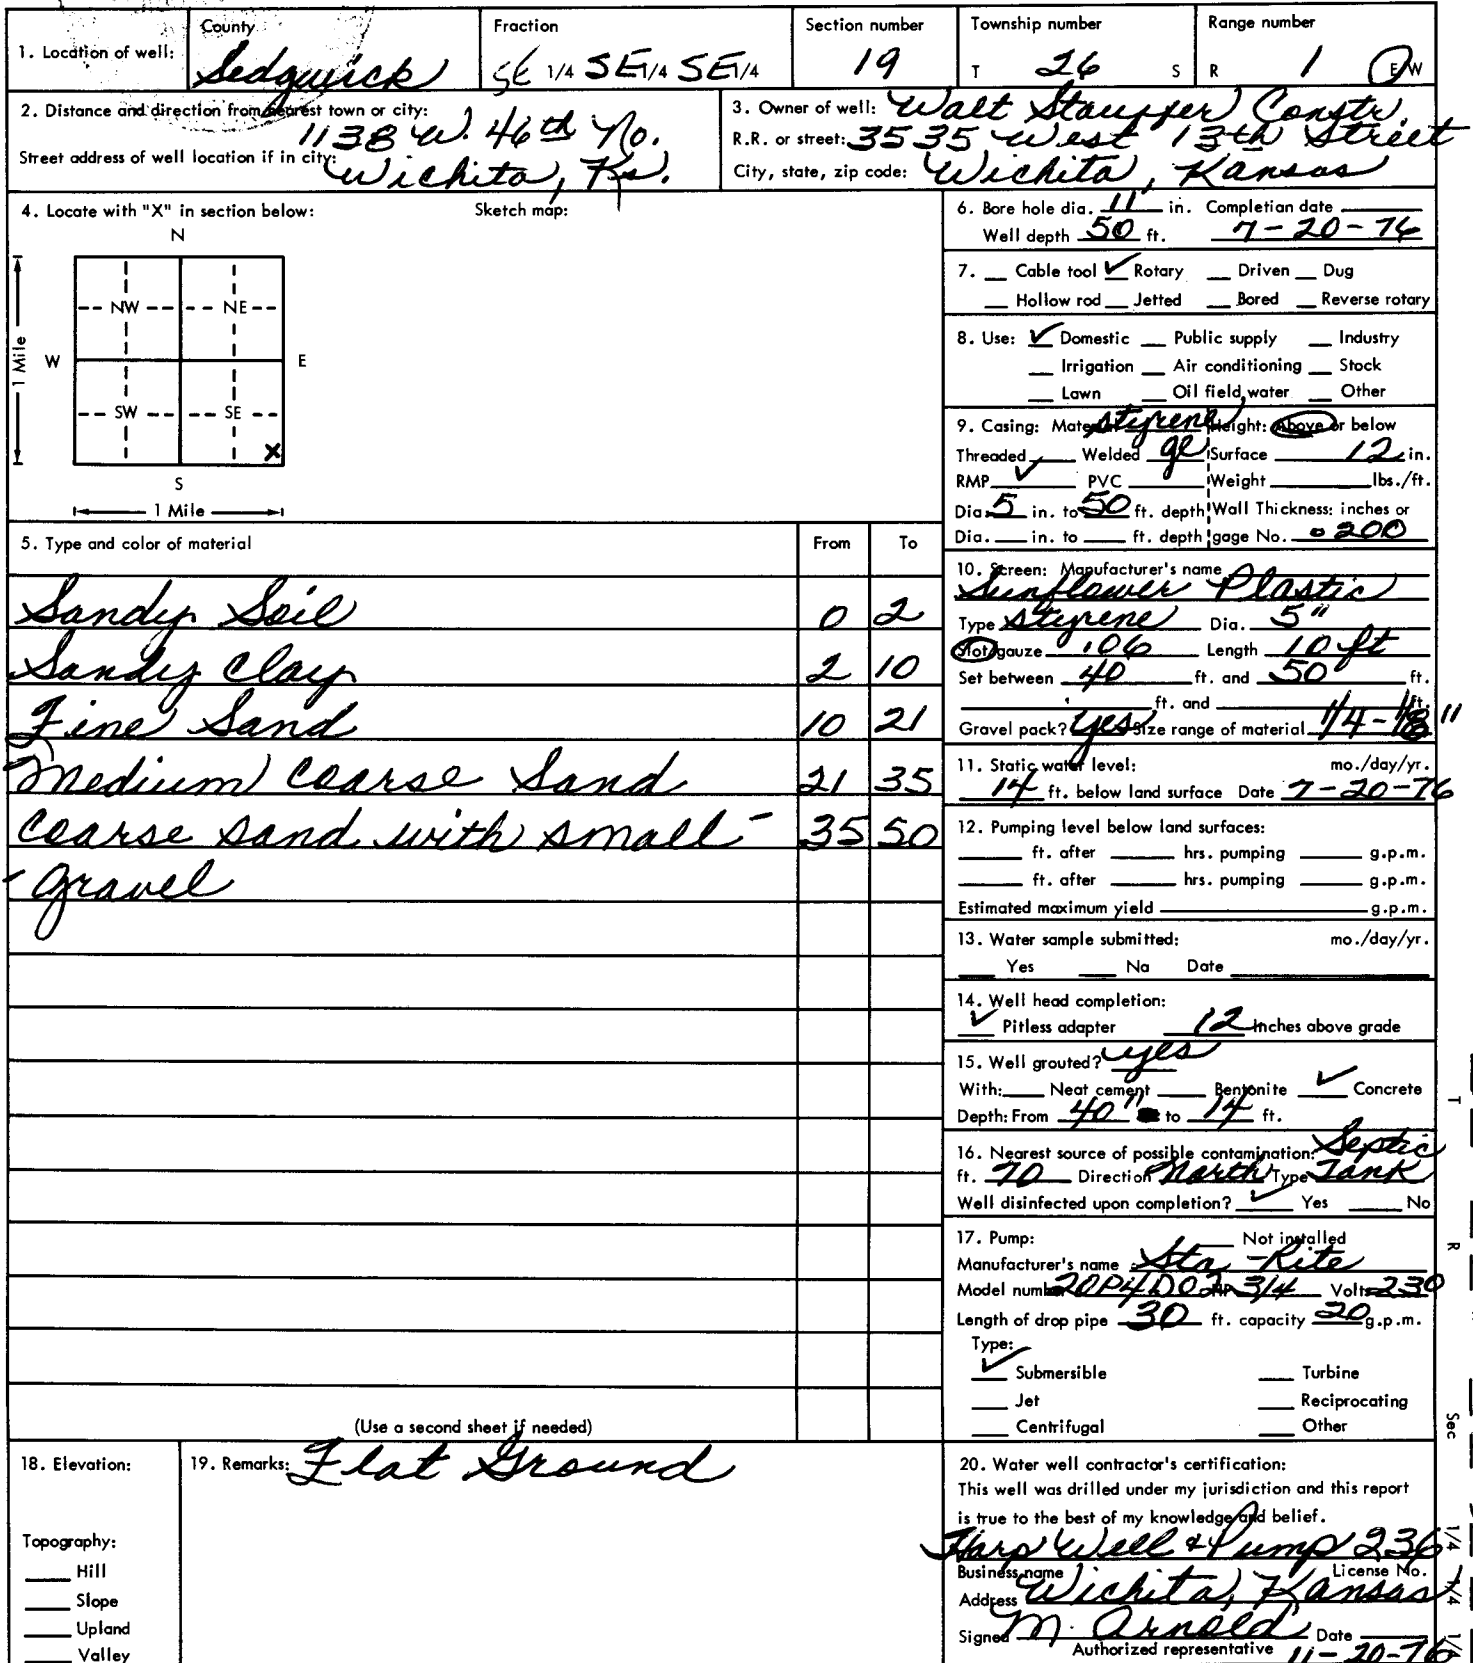 1. Location of well: County Sedgwick Fraction SE 1/4 SE 1/4 SE 1/4 Section number 19 Township number T 26 S Range number R 1 E/W
2. Distance and direction from nearest town or city:
1138 W. 46th No.
Street address of well location if in city: Wichita, Ks.
3. Owner of well: Walt Stauffer Constr.
R.R. or street: 3535 West 13th Street
City, state, zip code: Wichita, Kansas
4. Locate with "X" in section below: Sketch map:
N
NW NE
1 Mile W E
SW SE
X
S
1 Mile
5. Type and color of material From To
Sandy Soil 0 2
Sandy Clay 2 10
Fine Sand 10 21
Medium Coarse Sand 21 35
Coarse sand with small - 35 50
- gravel
(Use a second sheet if needed)
6. Bore hole dia. 11 in. Completian date
Well depth 50 ft. 7-20-76
7. Cable tool ✓ Rotary Driven Dug
Hollow rod Jetted Bored Reverse rotary
8. Use: ✓ Domestic Public supply Industry
Irrigation Air conditioning Stock
Lawn Oil field water Other
9. Casing: Material styrene Height: Above or below
Threaded Welded gl Surface 12 in.
RMP ✓ PVC Weight lbs./ft.
Dia. 5 in. to 50 ft. depth Wall Thickness: inches or
Dia. in. to ft. depth gage No. .200
10. Screen: Manufacturer's name
Sunflower Plastic
Type styrene Dia. 5"
Slot/gauze .06 Length 10 ft
Set between 40 ft. and 50 ft.
ft. and ft.
Gravel pack? yes Size range of material 1/4-1/8"
11. Static water level: mo./day/yr.
14 ft. below land surface Date 7-20-76
12. Pumping level below land surfaces:
ft. after hrs. pumping g.p.m.
ft. after hrs. pumping g.p.m.
Estimated maximum yield g.p.m.
13. Water sample submitted: mo./day/yr.
Yes Na Date
14. Well head completion:
✓ Pitless adapter 12 Inches above grade
15. Well grouted? yes
With: Neat cement Bentonite ✓ Concrete
Depth: From 40" to 14 ft.
16. Nearest source of possible contamination: Septic
ft. 70 Direction North Type Tank
Well disinfected upon completion? ✓ Yes No
17. Pump: Not installed
Manufacturer's name Sta-Rite
Model number 20P4D02 HP 3/4 Volts 230
Length of drop pipe 30 ft. capacity 20 g.p.m.
Type:
✓ Submersible Turbine
Jet Reciprocating
Centrifugal Other
18. Elevation:
Topography:
Hill
Slope
Upland
Valley
19. Remarks: Flat Ground
20. Water well contractor's certification:
This well was drilled under my jurisdiction and this report
is true to the best of my knowledge and belief.
Harp Well & Pump 236
Business name License No.
Address Wichita, Kansas
Signed M. Arnold Date
Authorized representative 11-20-76
T
R
Sec
1/4 1/4 1/4